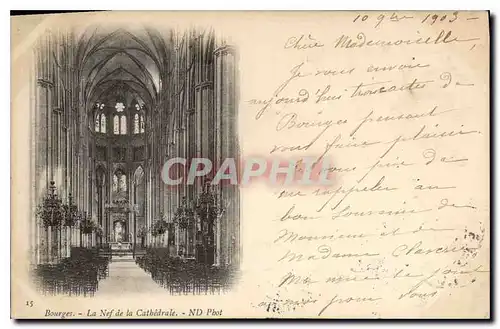 10 9bre 1903 -
Chère Mademoiselle,
Je vous envoie
aujourd'hui trois cartes de
Bourges pensant
vous faire plaisir
CPARAMA.COM
vous prie de
me rappeler au
bon souvenir de
Monsieur et de
Madame
Ma mère se joint
à moi pour vous
15
Bourges. - La Nef de la Cathédrale. - ND Phot